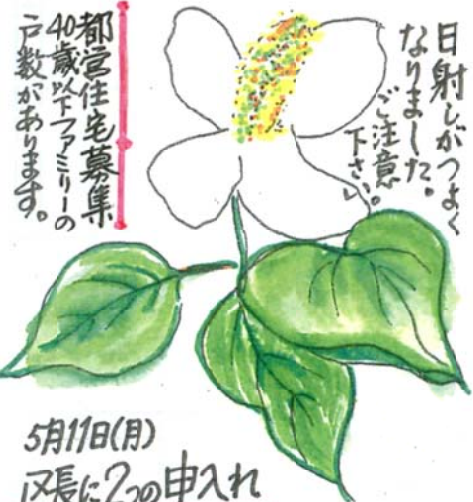 日射しがつよく
なりました。
ご注意
下さい。
都営住宅募集
40歳以下ファミリーの
戸数があります。
5月11日(月)
区長に2つの申入れ